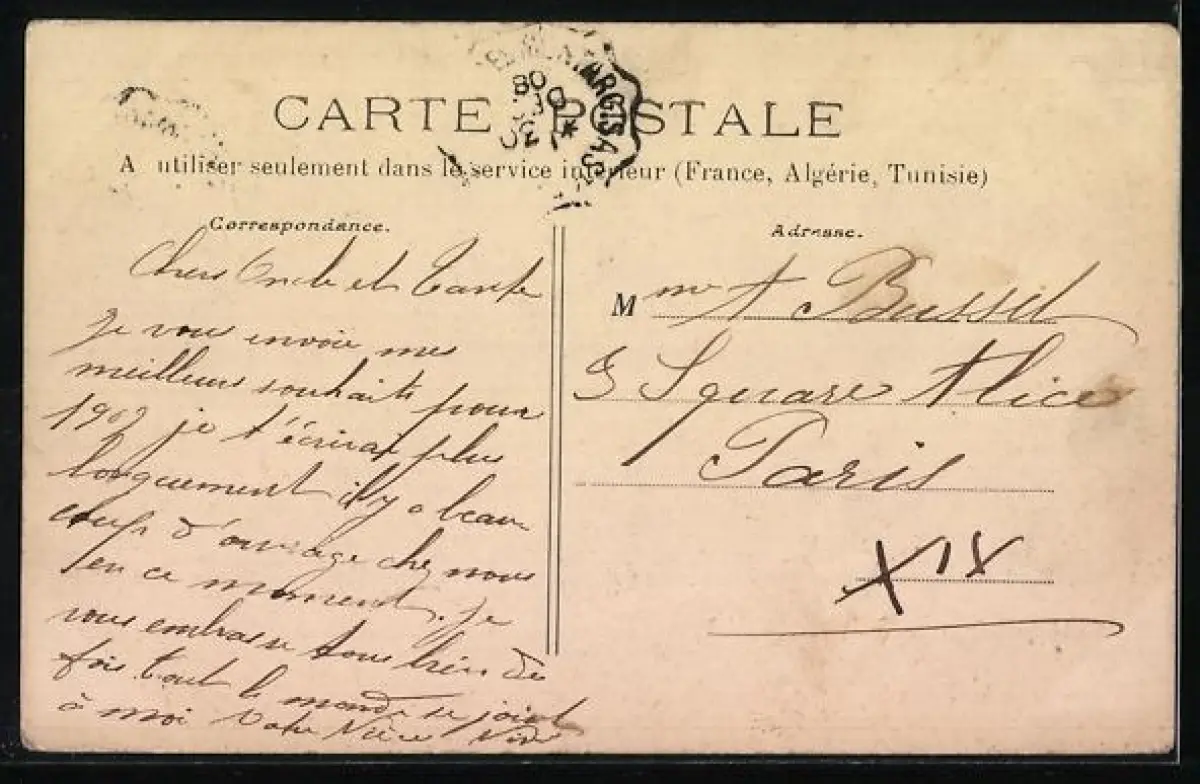 CARTE POSTALE
A utiliser seulement dans le service intérieur (France, Algérie, Tunisie)
Correspondance.
Chers Oncle et Tante
Je vous envoie mes
meilleurs souhaits pour
je t'écrirai plus
longuement il y a beau
coup d'ouvrage chez nous
en ce moment. je
vous embrasse tous bien des
fois tout le monde se joint
à moi Votre Nièce
Adresse.
M me A
Square Alice
Paris
XIX
MARGIS A
08